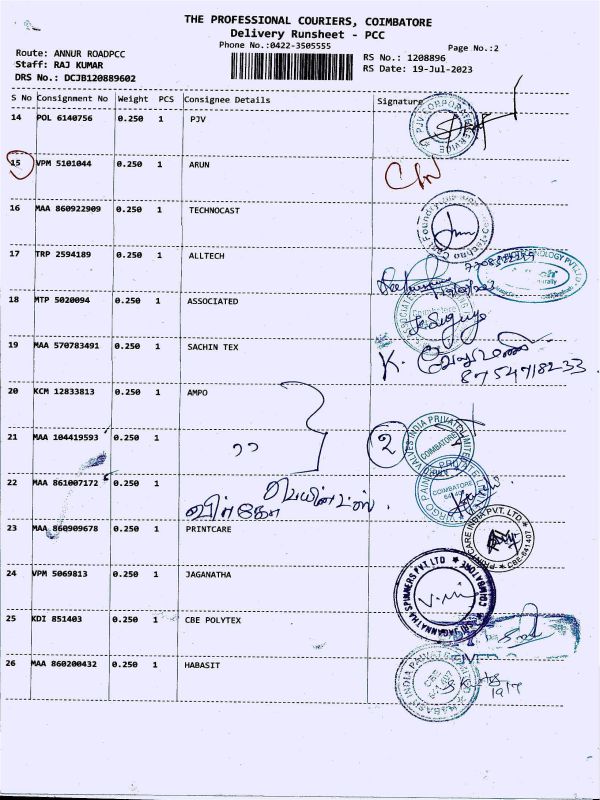 THE PROFESSIONAL COURIERS, COIMBATORE
Delivery Runsheet - PCC
Phone No.:0422-3505555
Page No.:2
Route: ANNUR ROADPCC
Staff: RAJ KUMAR
DRS No.: DCJB120889602
RS No.: 1208896
RS Date: 19-Jul-2023
S No Consignment No Weight PCS Consignee Details Signature
14 POL 6140756 0.250 1 PJV
15 VPM 5101044 0.250 1 ARUN
16 MAA 860922909 0.250 1 TECHNOCAST
17 TRP 2594189 0.250 1 ALLTECH
18 MTP 5020094 0.250 1 ASSOCIATED
19 MAA 570783491 0.250 1 SACHIN TEX
8754718233
20 KCM 12833813 0.250 1 AMPO
21 MAA 104419593 0.250 1 " 2
COIMBATORE
22 MAA 861007172 0.250 1
விர்கோ பெயின்ட்ஸ்.
COIMBATORE
23 MAA 860909678 0.250 1 PRINTCARE
PRINTCARE INDIA PVT. LTD CBE-641407
24 VPM 5069813 0.250 1 JAGANATHA
SRI JAGANNATHA SPINNERS PVT LTD COIMBATORE
25 KDI 851403 0.250 1 CBE POLYTEX
26 MAA 860200432 0.250 1 HABASIT
19/7